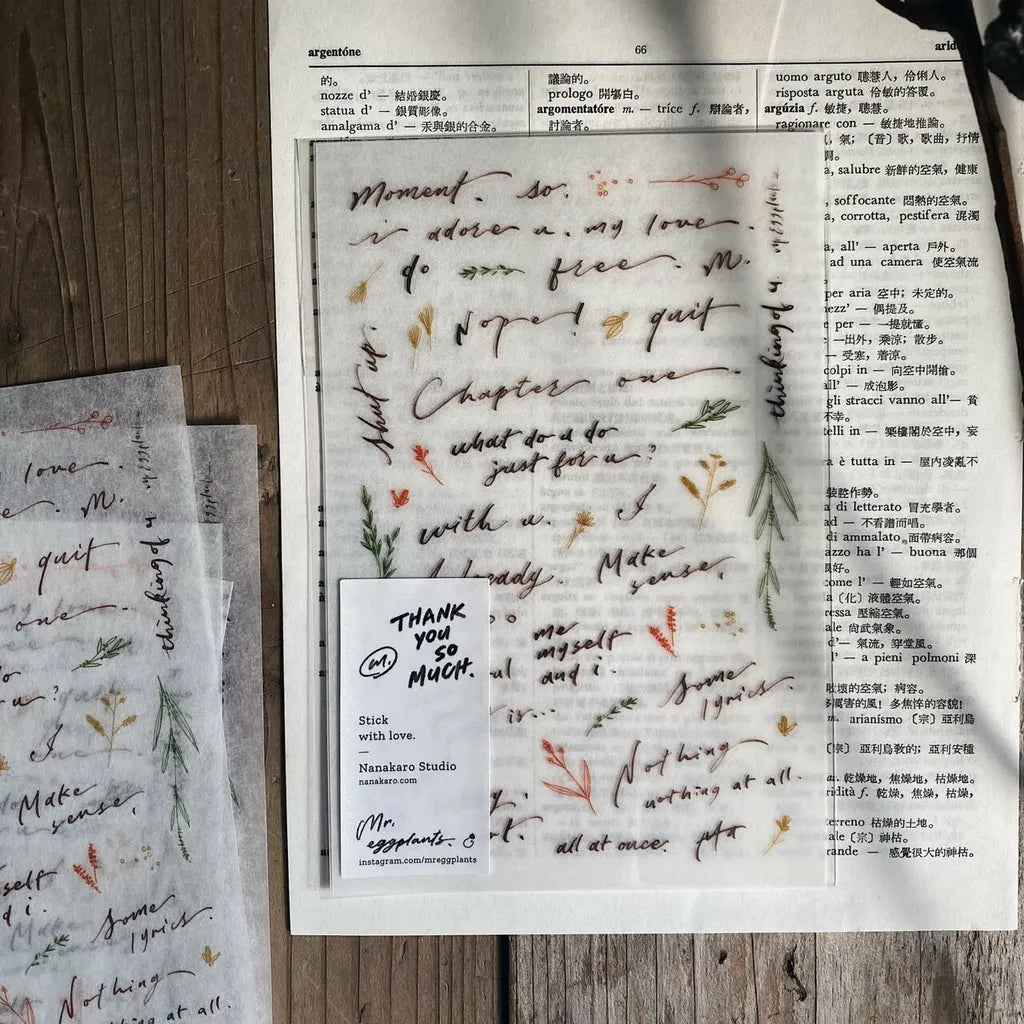 argentóne
66
的。
nozze d' — 結婚銀慶。
statua d' — 銀質彫像。
amalgama d' — 汞與銀的合金。
議論的。
prologo 開場白。
argomentatóre m. — tríce f. 辯論者,
討論者。
uomo arguto 聰慧人,伶俐人。
risposta arguta 伶敏的答覆。
argúzia f. 敏捷,聰慧。
ragionare con — 敏捷地推論。
氣;〔音〕歌,歌曲,抒情
salubre 新鮮的空氣,健康
soffocante 悶熱的空氣。
corrotta, pestifera 混濁
all' — aperta 戶外。
ad una camera 使空氣流
per aria 空中;未定的。
— 偶提及。
per — 一提就懂。
—出外,乘涼;散步。
— 受塞,着涼。
colpi in — 向空中開槍。
all' — 成泡影。
gli stracci vanno all'— 貧
不幸。
in — 築樓閣於空中,妄
è tutta in — 屋內凌亂不
裝腔作勢。
di letterato 冒充學者。
ad — 不看譜而唱。
di ammalato 面帶病容。
ha l' — buona 那個
很好。
come l' — 輕如空氣。
〔化〕液體空氣。
壓縮空氣。
尚武氣象。
d'— 氣流,穿堂風。
l' — a pieni polmoni 深
的空氣;病容。
的風!多焦悴的容貌!
m. arianísmo 〔宗〕亞利烏
〔宗〕亞利烏教的;亞利安種
乾燥地,焦燥地,枯燥地。
f. 乾燥,焦燥,枯燥,
terreno 枯燥的土地。
〔宗〕神枯。
— 感覺很大的神枯。
Moment. so.
i adore u. my love.
do free. M.
Nope! quit
shut up.
thinking of u.
mr.eggplants
Chapter one.
what do u do
just for u?
with u. I
Already. Make
sense.
me
myself
and i.
some
lyrics.
is...
Nothing
nothing at all.
all at once.
THANK
YOU
SO
MUCH.
m.
Stick
with love.
—
Nanakaro Studio
nanakaro.com
Mr.
eggplants.
instagram.com/mreggplants
love.
M.
quit
one.
thinking of u.
u?
I
Make
sense.
self
d i.
some
lyrics.
Nothing
at all.